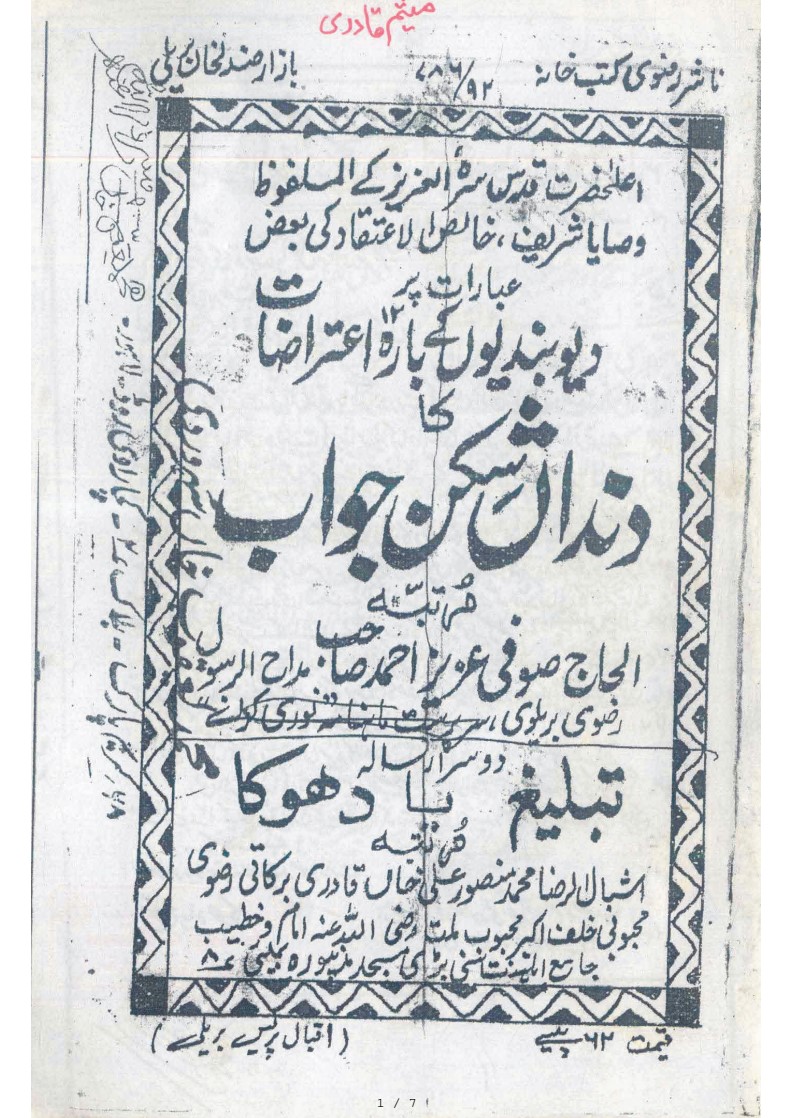 میثم قادری
ناشر رضوی کتب خانہ ۷۸۶/۹۲ بازار صندلخان بریلی
اعلیٰحضرت قدس سرہٗ العزیز کے الملفوظ
وصایا شریف، خالص الاعتقاد کی بعض
عبارات پر
دیوبندیوں کے بارہ ۱۲ اعتراضات
کا
دنداں شکن جواب
مرتبہ
الحاج صوفی عزیز احمد صاحب مداح الرسول
رضوی بریلوی، سرپرست ماہنامہ "نوری کرن"
دوسرا رسالہ
تبلیغ یا دھوکا
مرتبہ
اشبال الرضا محمد منصور علی خاں قادری برکاتی رضوی
محبوبی خلف اکبر محبوب ملت رضی اللہ عنہ امام و خطیب
جامع اہلسنت سنی بڑی مسجد مدنپورہ بمبئی ۸
قیمت ۶۲ پیسے (اقبال پریس بریلی)
1 / 7